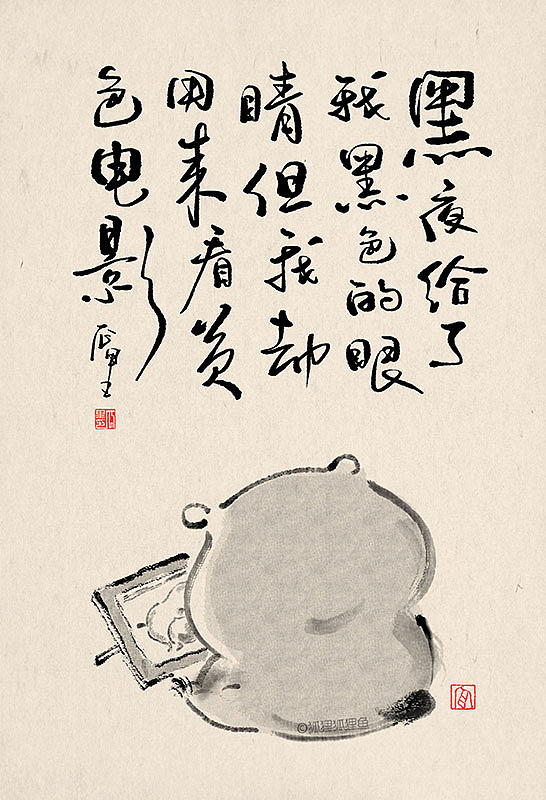 黑夜给了
我黑色的眼
睛但我却
用来看黄
色电影
©狐狸狐狸鱼